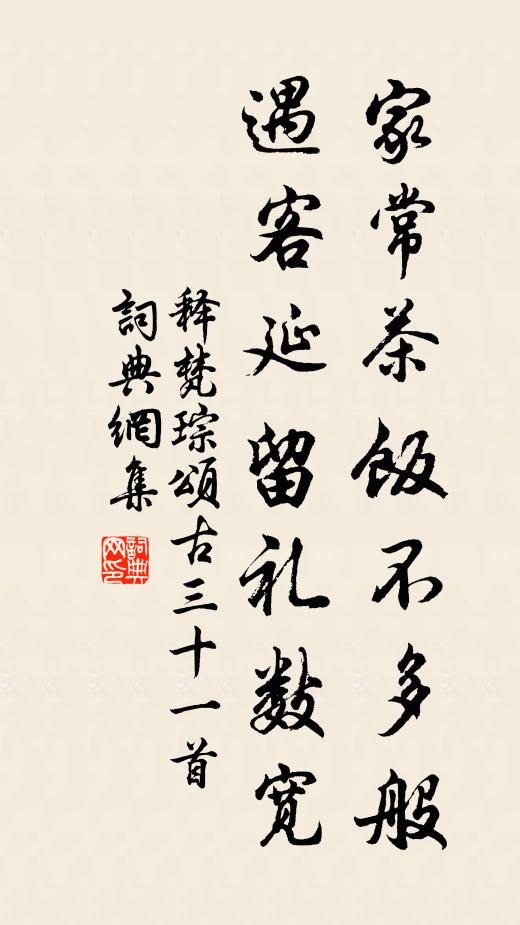 家常茶飯不多般
遇客延留礼數宽
释梵琮頌古三十一首
詞典網集
詞典网印